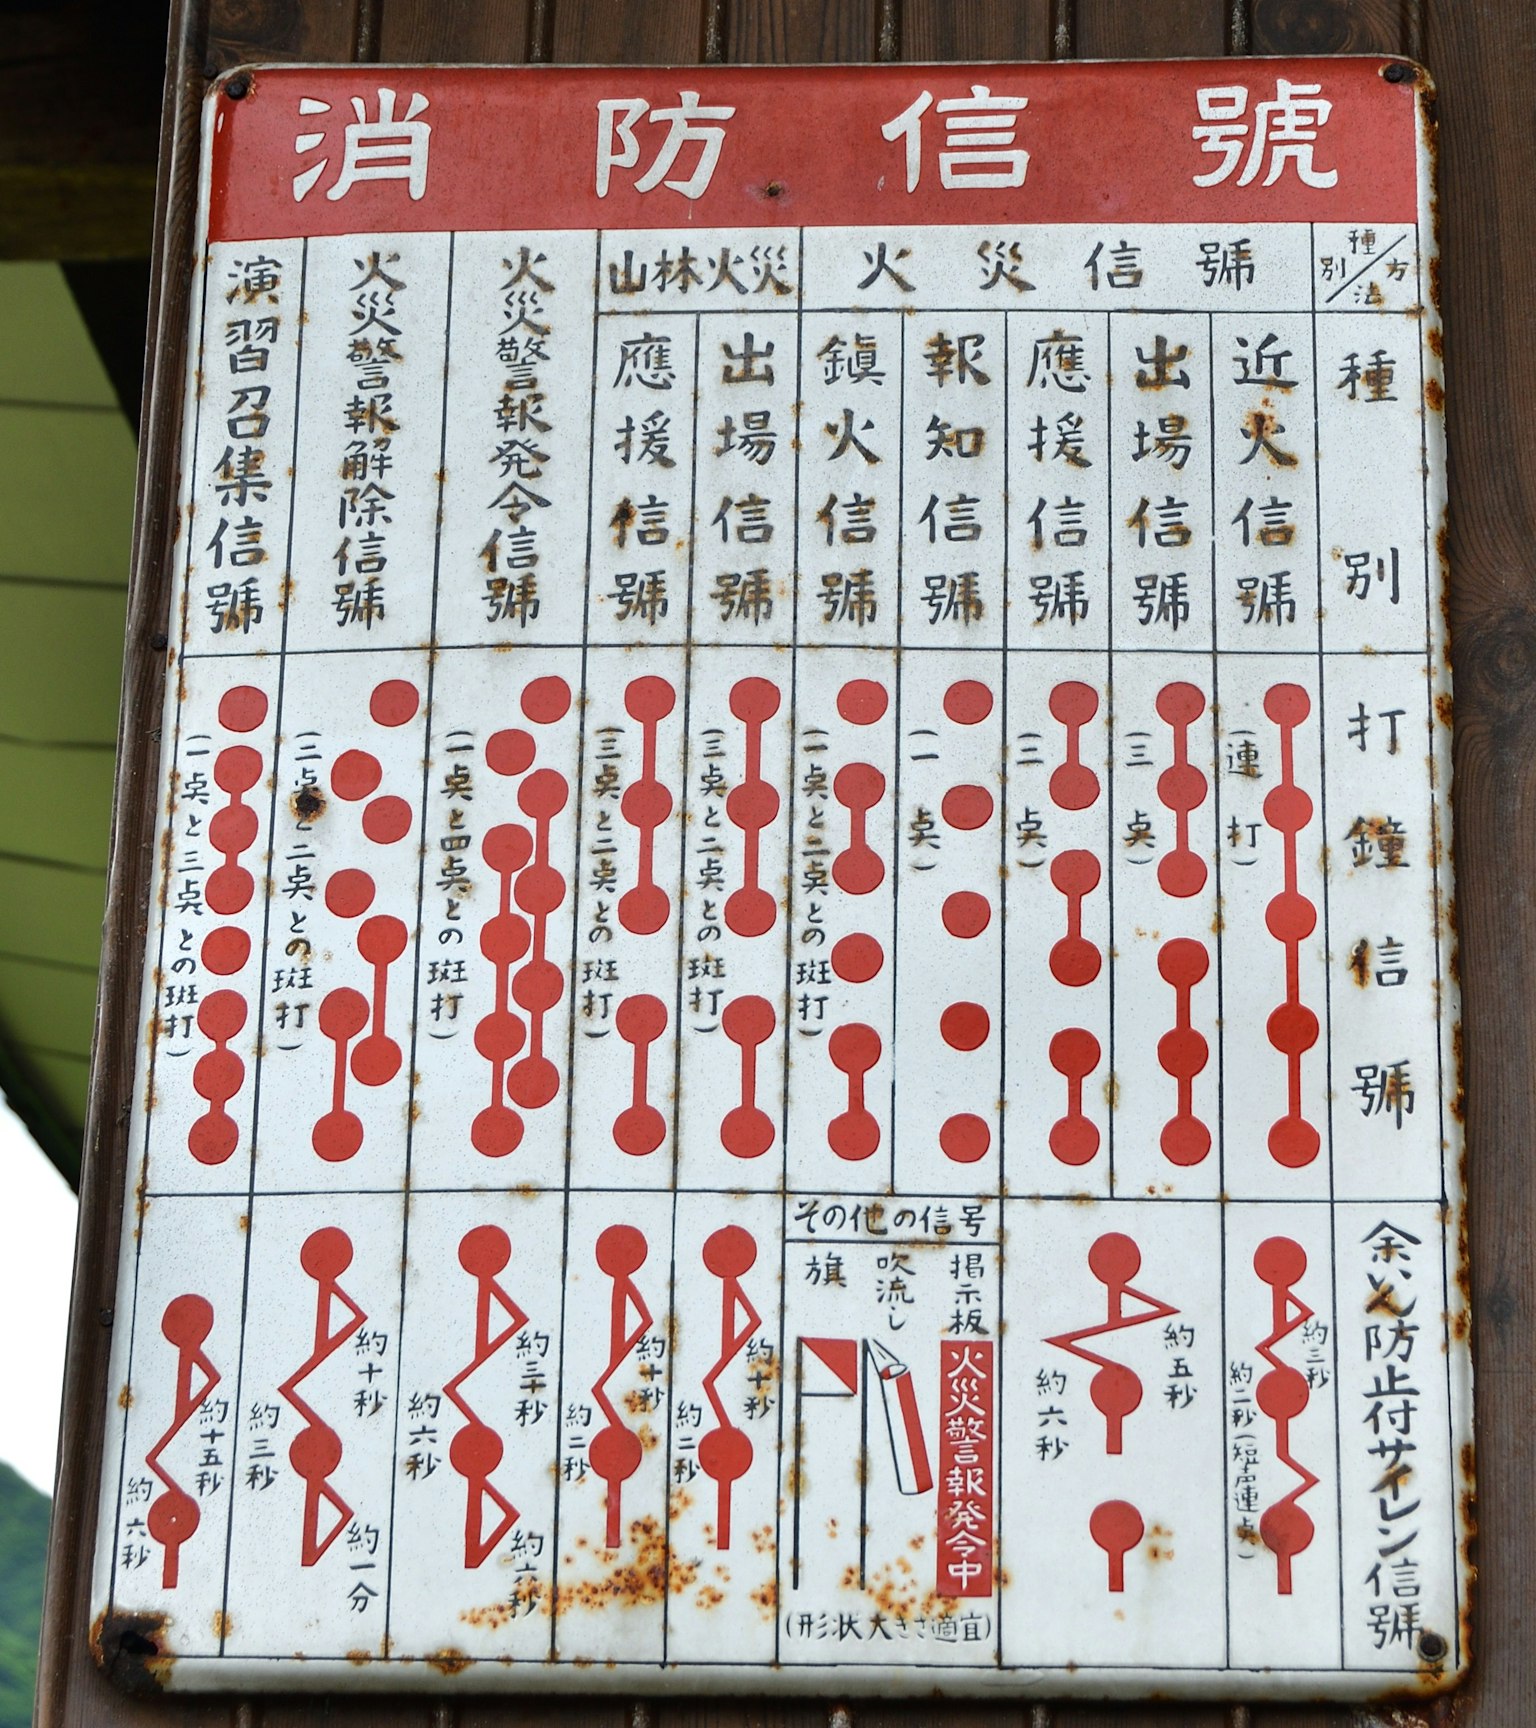 消防信號
種別
方法
火災信號
山林火災
種別
近火信號
出場信號
應援信號
報知信號
鎭火信號
出場信號
應援信號
火災警報発令信號
火災警報解除信號
演習召集信號
打鐘信號
(連打)
(三点)
(二点)
(一点)
(一点と二点との斑打)
(三点と二点との斑打)
(三点と二点との斑打)
(一点と四点との斑打)
(二点と二点との斑打)
(一点と三点との斑打)
余いん防止付サイレン信號
約三秒
約二秒(短声連点)
約五秒
約六秒
その他の信号
掲示板
火災警報発令中
吹流し
旗
(形状大きさ適宜)
約十秒
約二秒
約二秒
約三十秒
約六秒
約六秒
約十秒
約三秒
約一分
約十五秒
約六秒